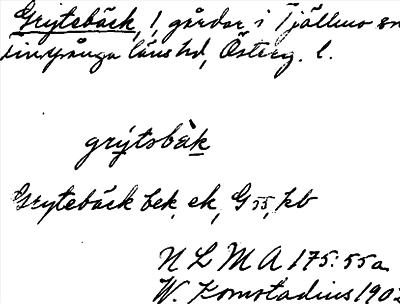 Grytebäck, 1, gårdar i Tjällmo sn
Finspånga läns hd, Österg. l.
grýtsbàk
Grytebäck bek. ek, G 55, kb
N L M A 175:55a
W. Komstadius 1902